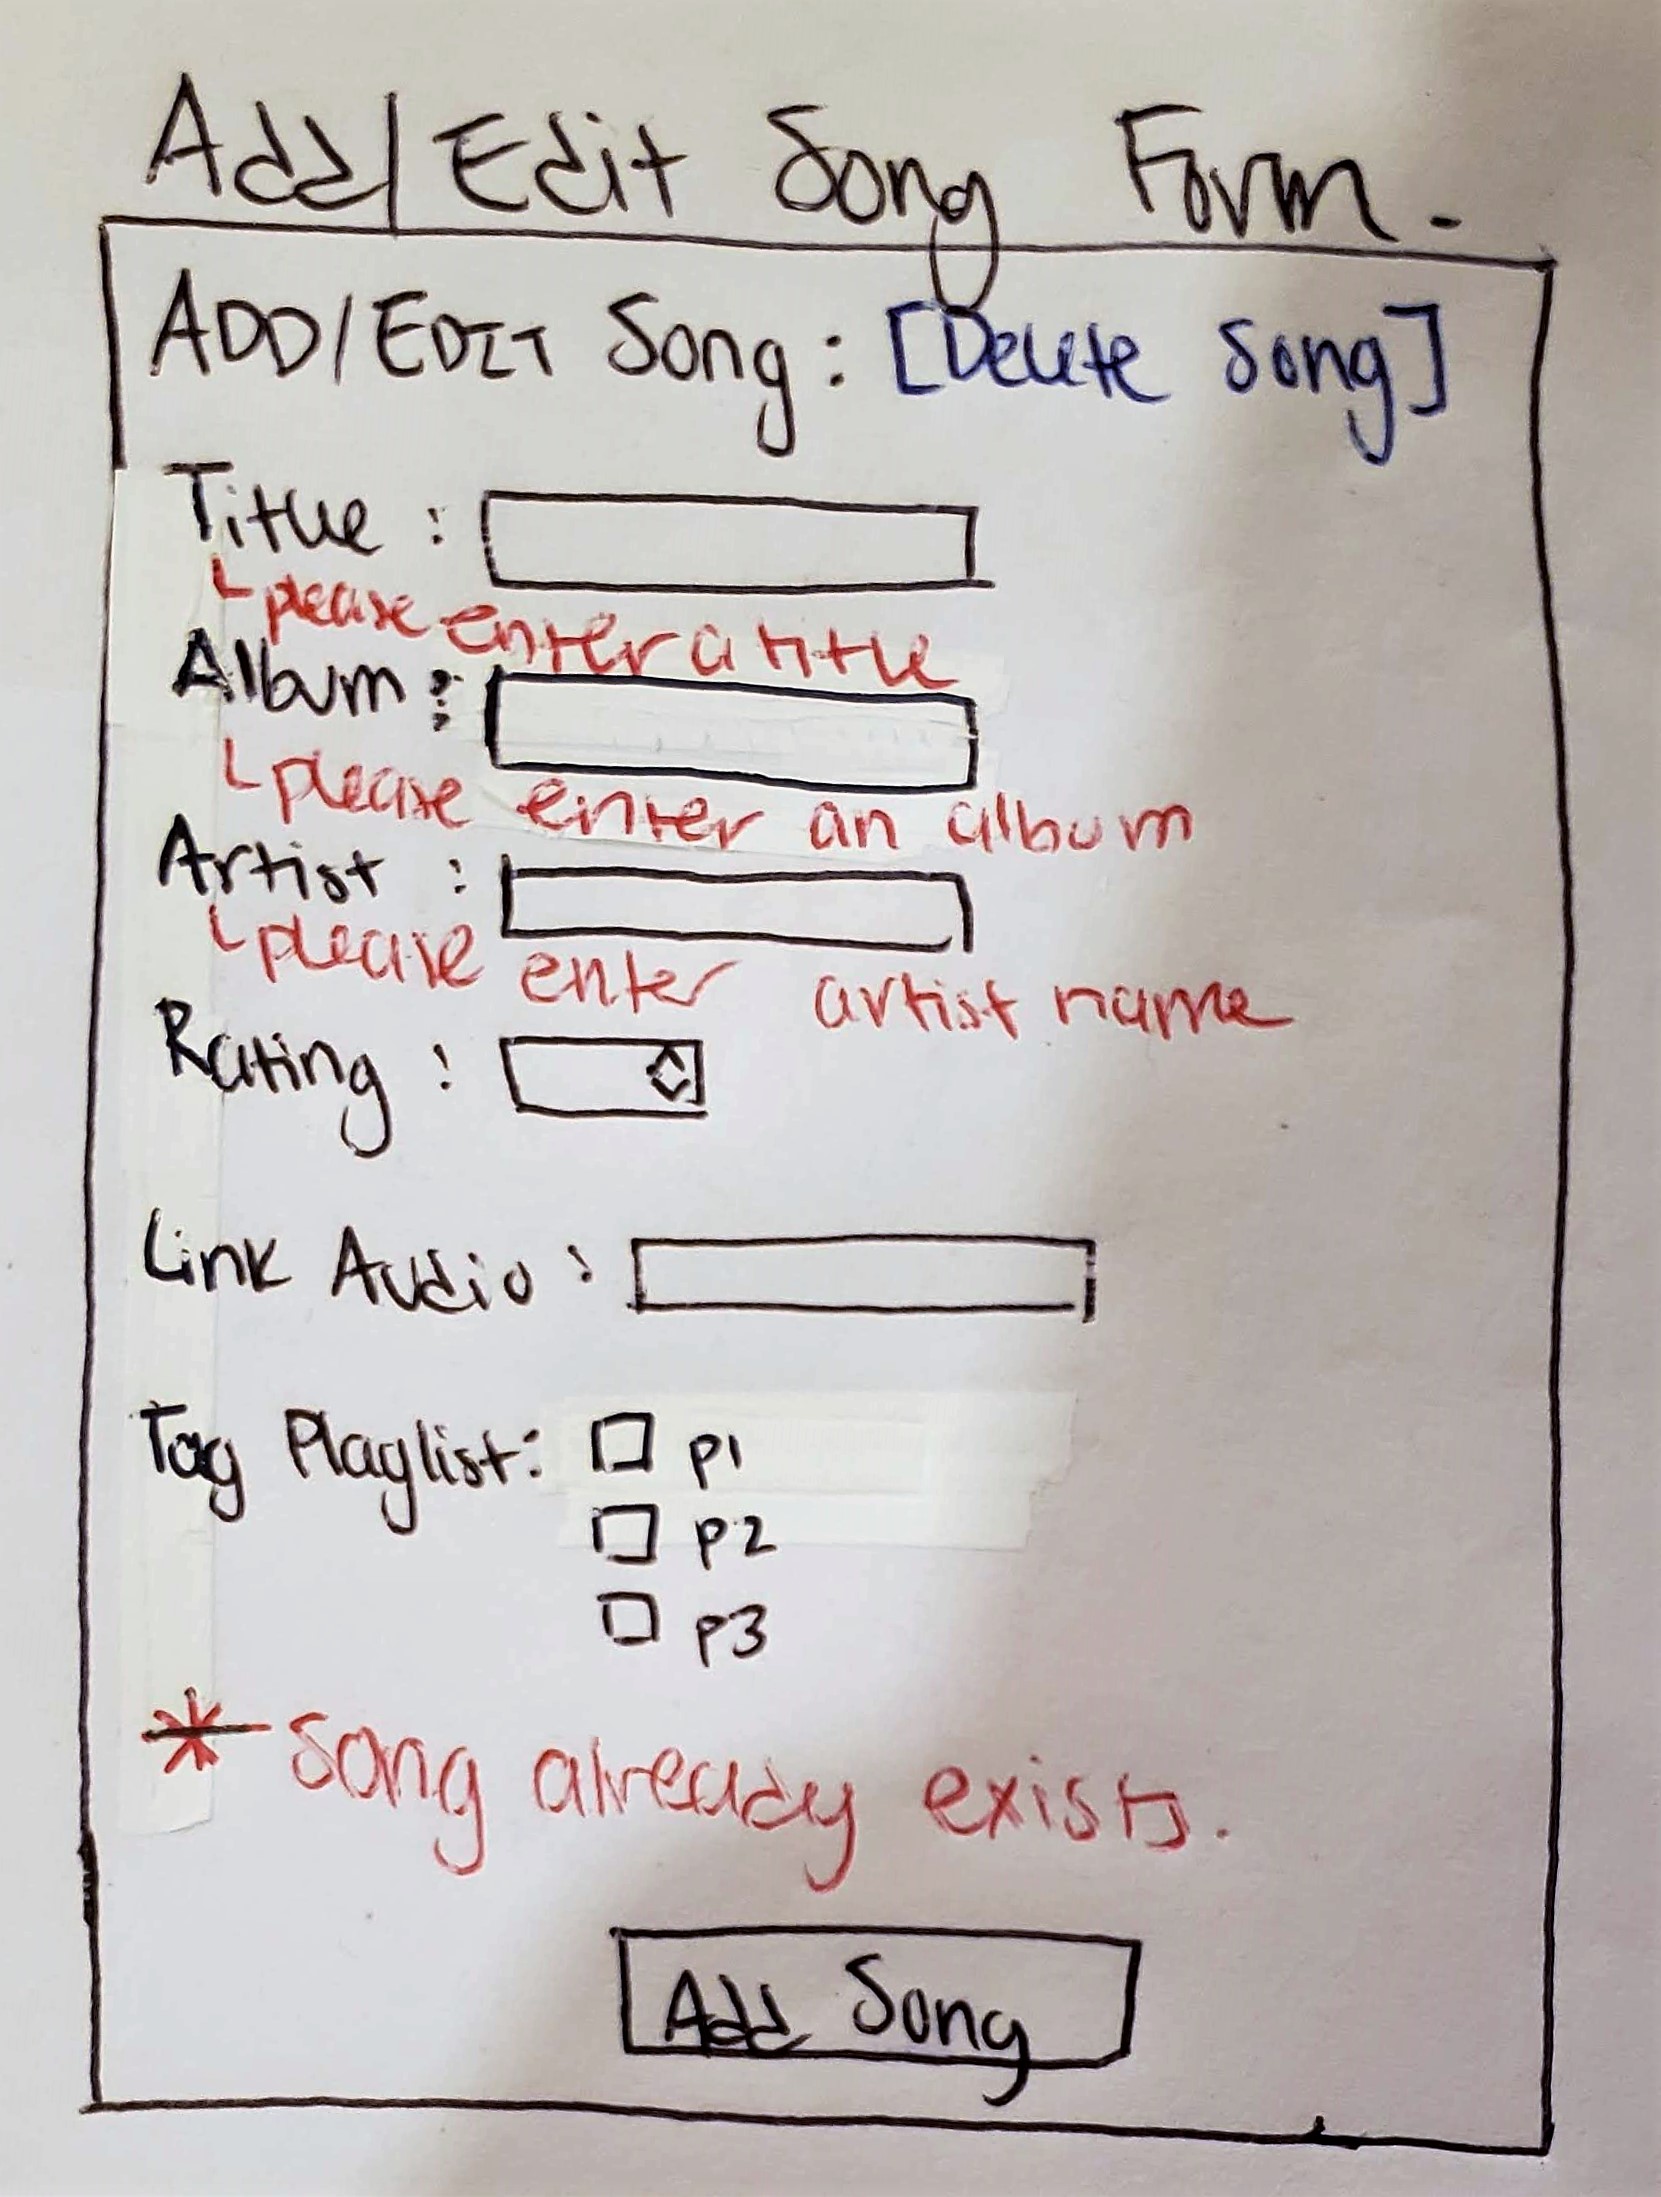 Add/Edit Song Form.
ADD/EDIT Song: [Delete Song]
Title :
please enter a title
Album :
please enter an album
Artist :
please enter artist name
Rating :
Link Audio :
Tag Playlist: p1
p2
p3
* Song already exists.
Add Song